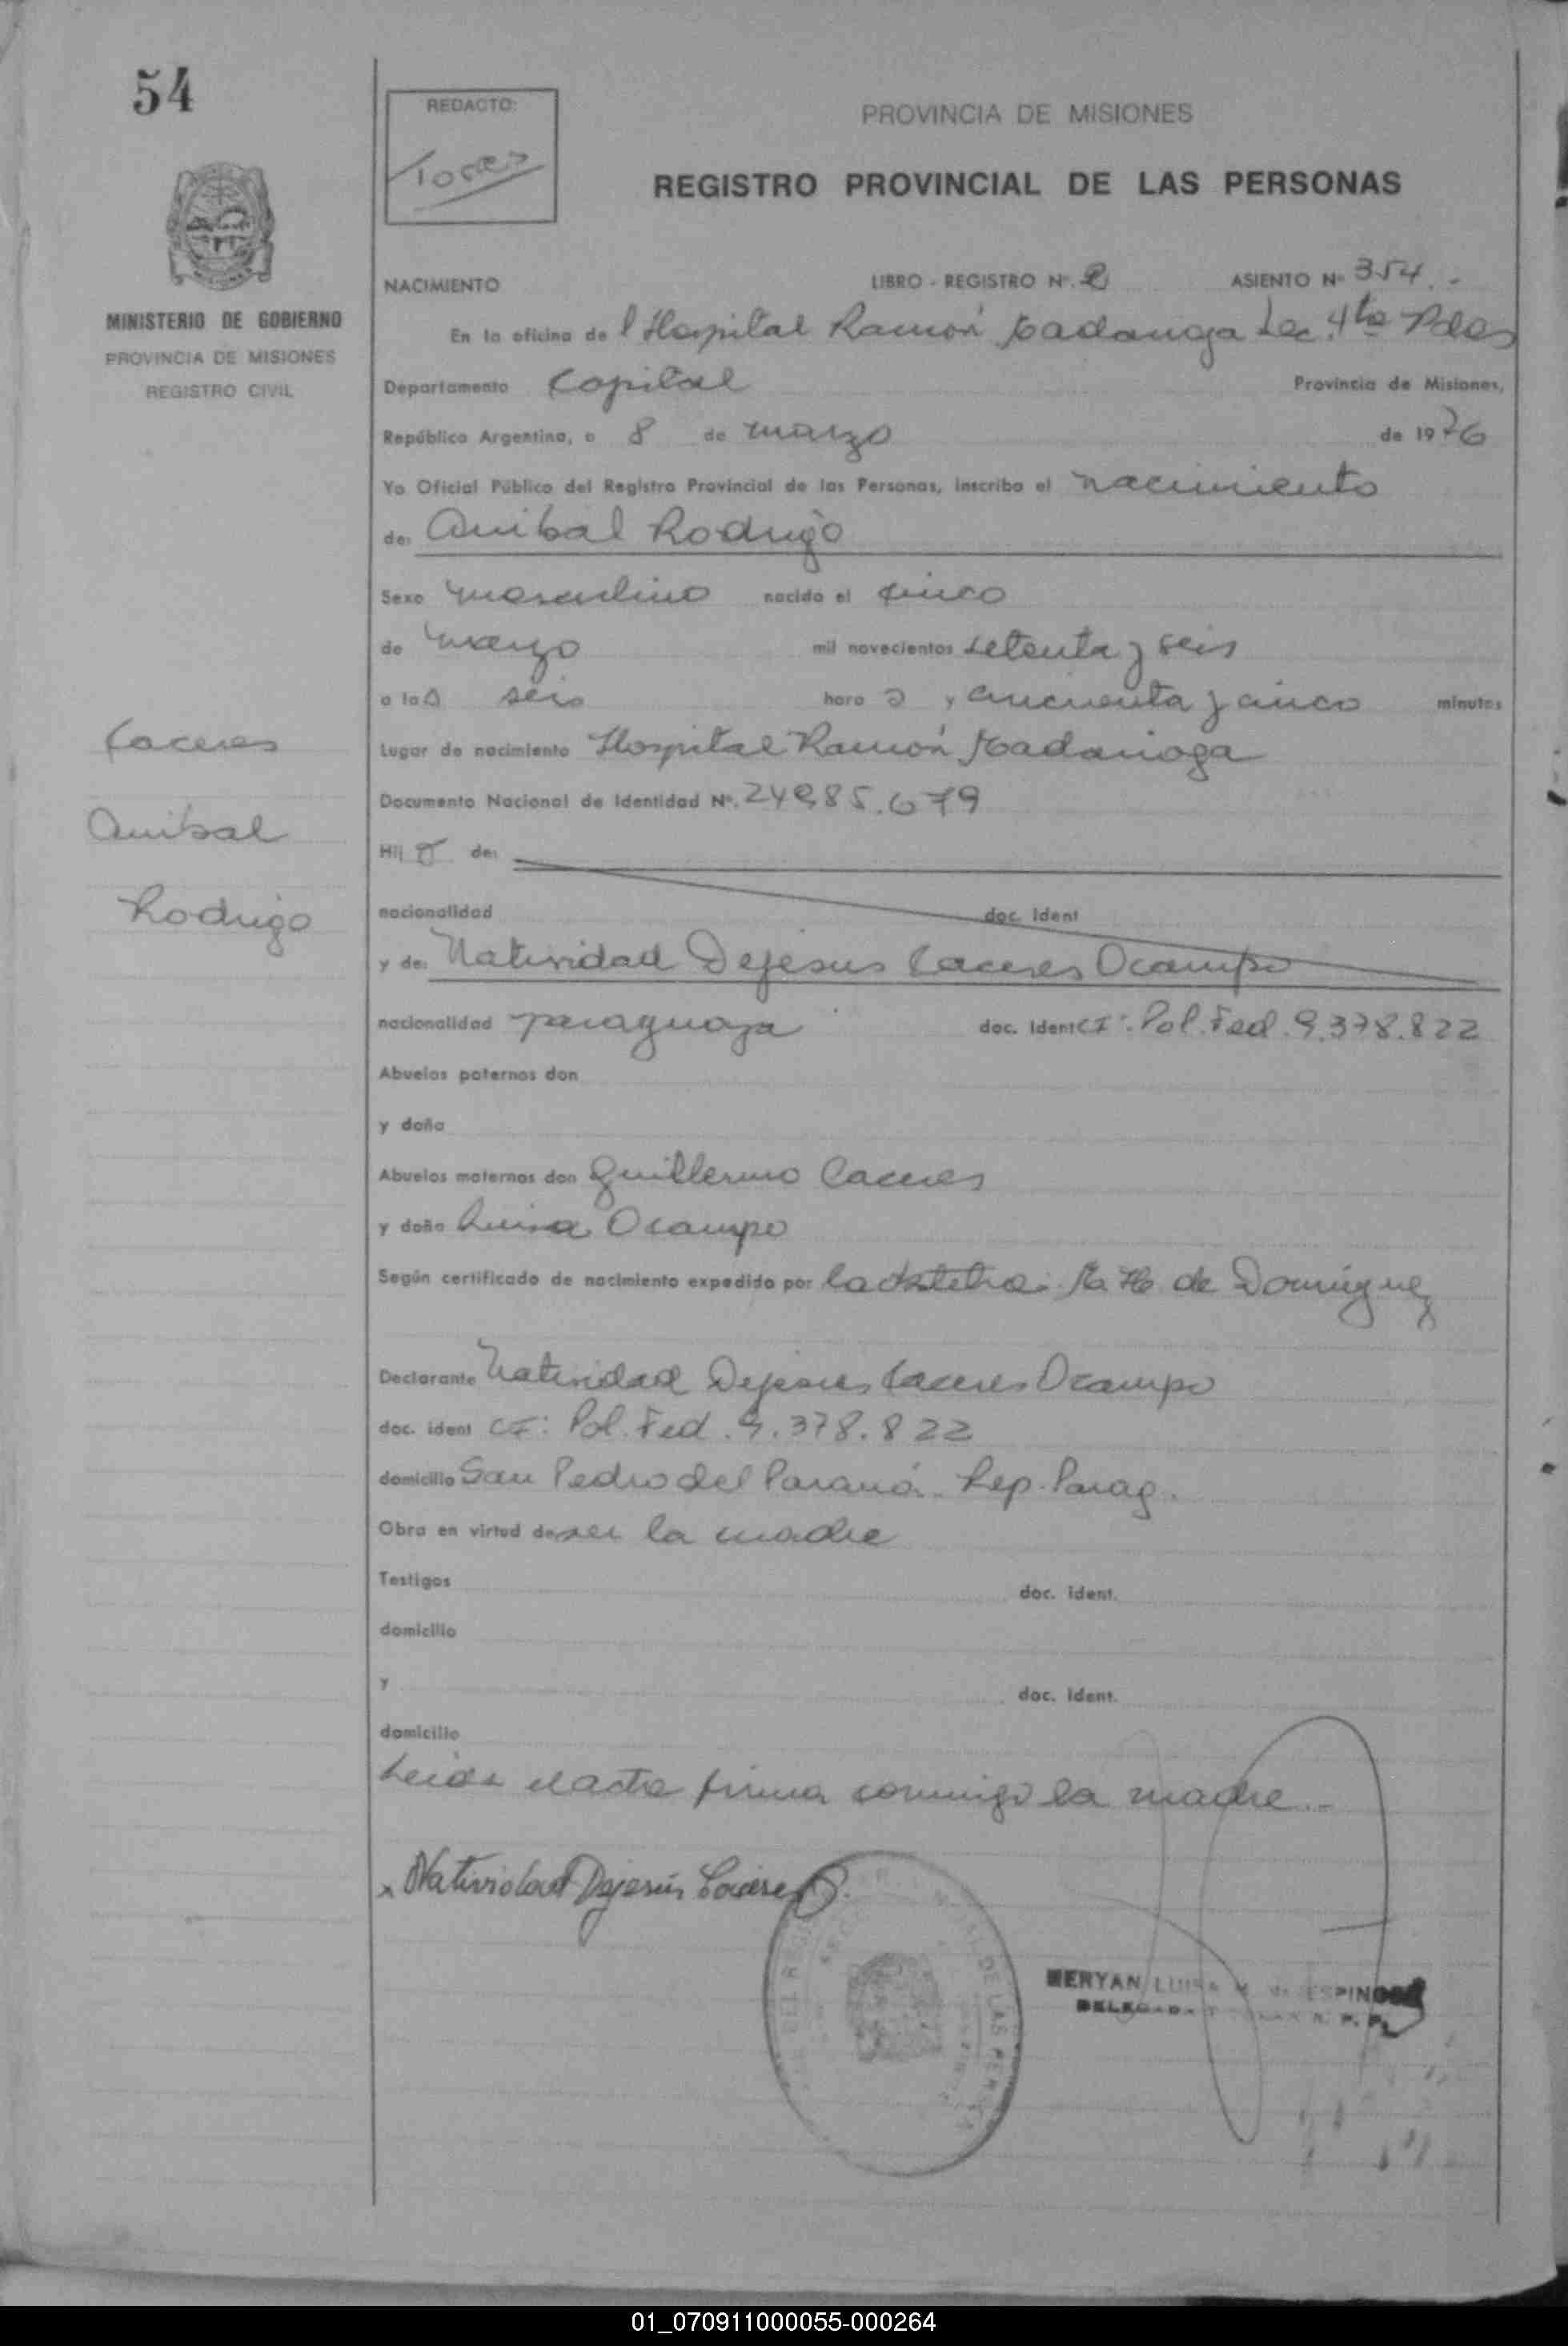 54
REDACTO:
PROVINCIA DE MISIONES
REGISTRO PROVINCIAL DE LAS PERSONAS
NACIMIENTO LIBRO - REGISTRO Nº. 2 ASIENTO Nº 354.-
MINISTERIO DE GOBIERNO
PROVINCIA DE MISIONES
REGISTRO CIVIL
En la oficina de l Hospital Ramón Madariaga Sec. 4ta Pdas
Departamento Capital Provincia de Misiones,
República Argentina, a 8 de marzo de 1976
Yo Oficial Público del Registro Provincial de las Personas, inscribo el nacimiento
de: Anibal Rodrigo
Sexo masculino nacido el cinco
de marzo mil novecientos setenta y seis
a las seis hora s y cincuenta y cinco minutos
Caceres
Anibal
Rodrigo
Lugar de nacimiento Hospital Ramón Madariaga
Documento Nacional de Identidad Nº. 24.985.679
Hijo de:
nacionalidad doc. ident
y de: Natividad Dejesus Caceres Ocampo
nacionalidad paraguaya doc. ident CI: Pol. Fed. 9.378.822
Abuelos paternos don
y doña
Abuelos maternos don Guillermo Caceres
y doña Luisa Ocampo
Según certificado de nacimiento expedido por la obstetra: de Dominguez
Declarante Natividad Dejesus Caceres Ocampo
doc. ident CI: Pol. Fed. 9.378.822
domicilio San Pedro del Paraná - Rep. Parag.
Obra en virtud de ser la madre
Testigos doc. ident.
domicilio
y doc. ident.
domicilio
Leida el acta firma conmigo la madre.-
x Natividad Dejesús Cáceres O.
DE LAS PERSONAS
MERYAN LUISA M. de ESPINOSA
DELEGADA TITULAR R. P. P.
01_070911000055-000264